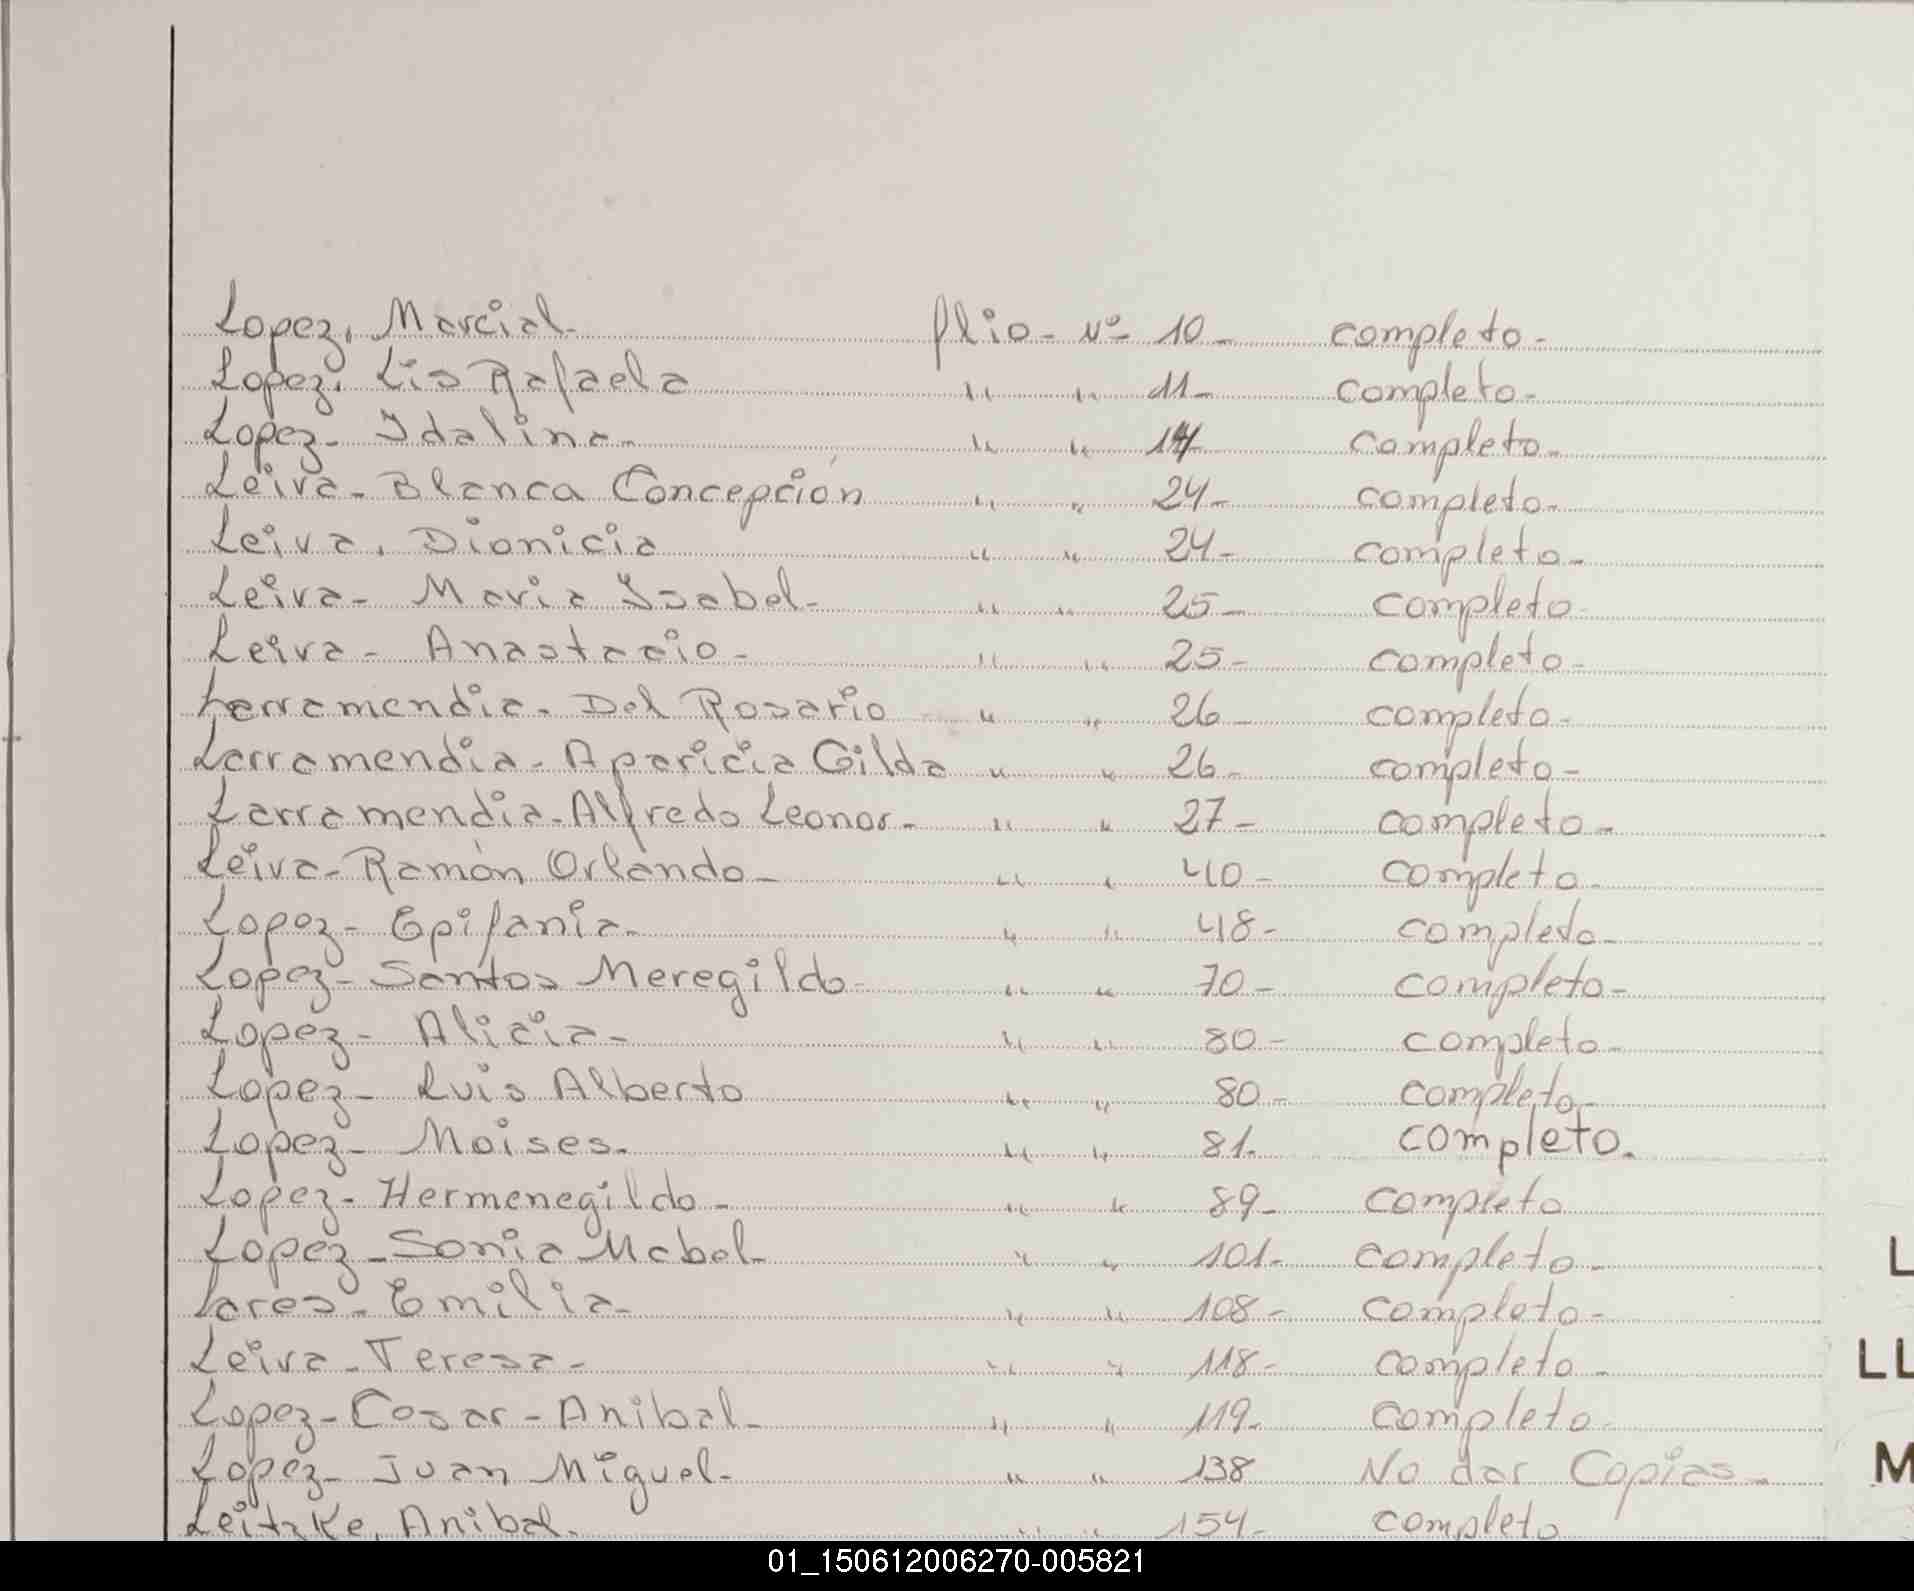 Lopez, Marcial- flio- Nº- 10- completo-
Lopez, Lis Rafaela " " 11- completo-
Lopez- Idalina- " " 14- completo-
Leiva- Blanca Concepción " " 24- completo-
Leiva, Dionicia " " 24- completo-
Leiva- Maria Isabel- " " 25- completo-
Leiva- Anastacio- " " 25- completo-
Larramendia- Del Rosario " " 26- completo-
Larramendia- Aparicia Gilda " " 26- completo-
Larramendia- Alfredo Leonor- " " 27- completo-
Leiva- Ramón Orlando- " " 40- completo-
Lopez- Epifania- " " 48- completo-
Lopez- Santos Meregildo- " " 70- completo-
Lopez- Alicia- " " 80- completo-
Lopez- Luis Alberto " " 80- completo-
Lopez- Moises- " " 81. completo.
Lopez- Hermenegildo- " " 89- completo
Lopez- Sonia Mabel- " " 101- completo-
L
Lares- Emilia- " " 108- completo-
Leiva- Teresa- " " 118- completo-
LL
Lopez- Cesar- Anibal- " " 119- completo-
Lopez- Juan Miguel- " " 138 No dar Copias-
M
Leitzke, Anibal- " " 154- completo
01_150612006270-005821